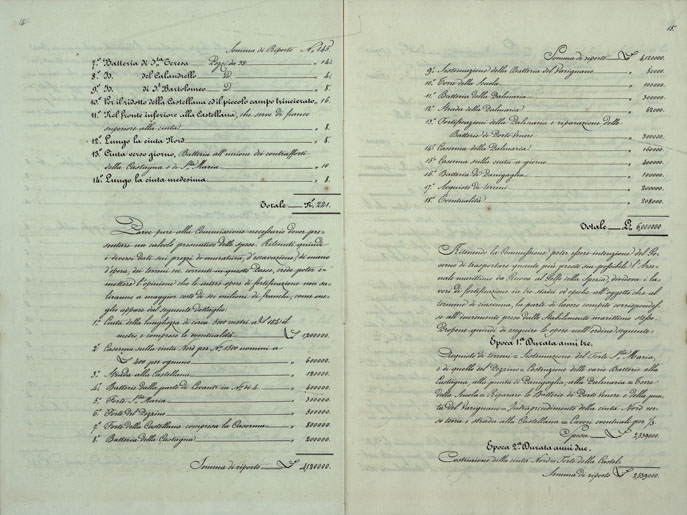 Somma di Riporto N.º 145.
7.º Batteria di S.ta Teresa Pezzi da 32 " 14.
8.º D. del Calandrello D. " 4.
9.º D. di S.n Bartolomeo D. " 8.
10.º Per il ridotto della Castellana ed il piccolo campo trincierato " 16.
11.º Nel fronte inferiore alla Castellana, che serve di fianco
superiore alla cinta " 8.
12.º Lungo la cinta Nord " 8.
13.º Cinta verso giorno, Batteria all'unione dei contrafforti
della Castagna e di S.ta Maria " 10
14.º Lungo la cinta medesima " 8.
Totale N.º 221.
Parve pure alla Commissione necessario dover pre-
sentare un calcolo presuntivo delle spese. Ritenuti quindi
i diversi dati sui prezzi di muratura, d'escavazione, di mano
d'opera, dei terreni ec. correnti in questo Paese, crede poter e-
mettere l'opinione che le intere opere di fortificazione non su-
leranno a maggior costo di sei milioni di franchi, come me-
glio appare dal seguente dettaglio.
1.º Cinta della lunghezza di circa
metro e compreso le eventualità £ 1,200000.
2.º Caserma sulla cinta Nord per N.º 1500 uomini a
£ 400 per ognuno " 600000.
3.º Strada alla Castellana " 120000.
4.º Batterie dalla parte di Levante in N.º di 4. " 400000.
5.º Forte S.ta Maria " 300000.
6.º Forte del Pezzino " 300000.
7.º Forte della Castellana compresa la Caserma " 800000.
8.º Batteria della Castagna " 200000.
Somma di riporto £ 4,120000.
15.
Somma di riporto £ 4,120000.
9.º Sistemazione della Batteria del Varignano " 50000.
10.º Torre della Scuola " 100000.
11.º Batteria della Palmaria " 300000.
12.º Strada della Palmaria
13.º Fortificazioni della Palmaria e riparazione delle
Batterie di Porto Venere " 300000.
14.º Caserma della Palmaria
15.º Caserma sulla cinta a giorno
16.º Batteria di Panigaglia " 100000.
17.º Acquisto di terreni " 200000.
18.º Eventualità
Totale £ 6,000000
Ritenendo la Commissione poter essere intenzione del Go-
verno di trasportare quanto più presto sia possibile l'Arse-
nale marittimo da Genova al Golfo della Spezia, divideva i la-
vori di fortificazione in tre stadii od epoche all'oggetto che al
termine di ciascuna, la parte di lavoro compito corrispondes-
se all'incremento preso dallo Stabilimento marittimo stesso.
Propone quindi di eseguire le opere nell'ordine seguente:
Epoca 1.ª Durata anni tre.
Acquisto di terreni = Sistemazione del Forte S.ta Maria,
e di quello del Pezzino = Costruzione delle varie Batterie alla
Castagna, alla punta di Panigaglia, alla Palmaria = Torre
della Scuola = Riparare le Batterie di Porto Venere e della pun-
ta del Varignano = Intraprendimento della cinta Nord ver-
so terra e strada alla Castellana = Lavori eventuali per 1/3.
Spesa £ 2,539000.
Epoca 2.ª Durata anni due.
Costruzione della cinta Nord = Forte della Castel-
Somma di riporto £ 2,539000.